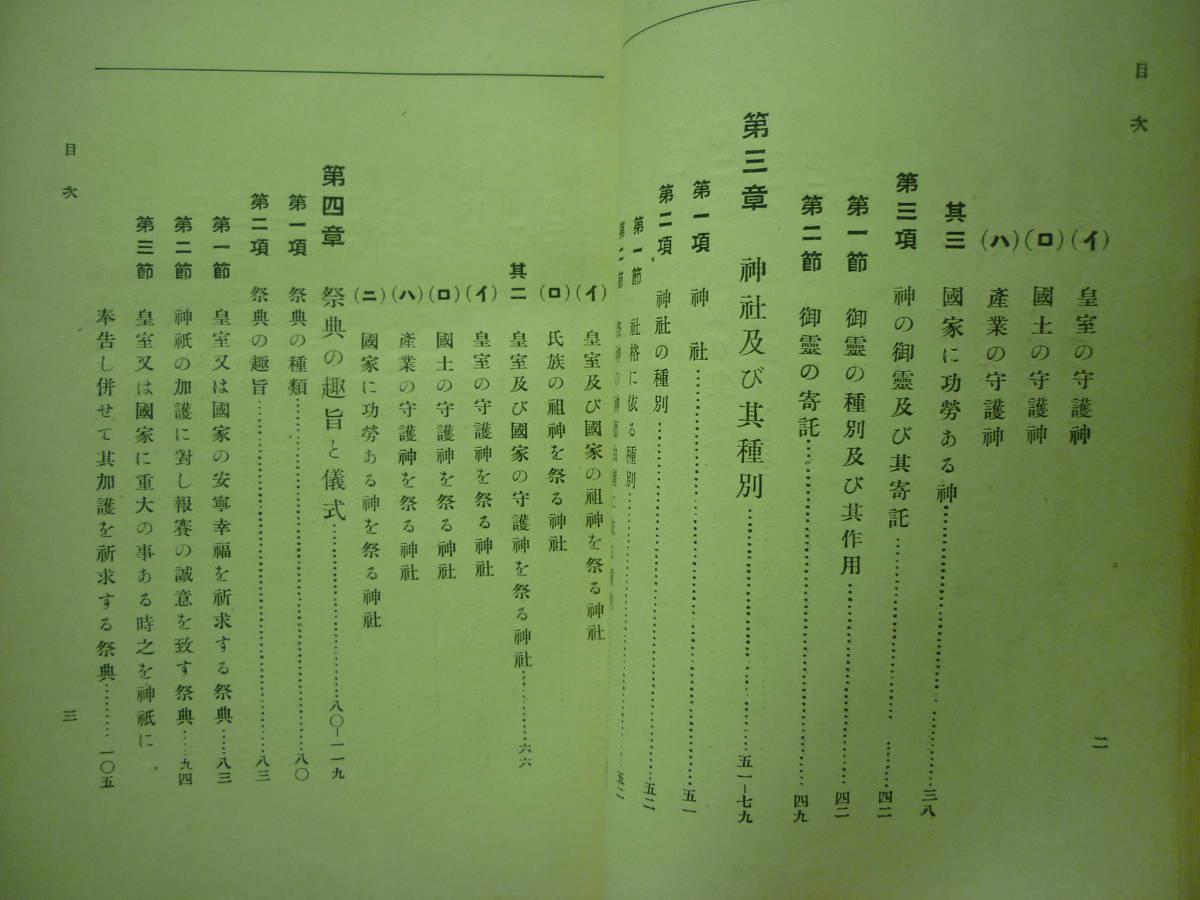 目次
(イ) 皇室の守護神
(ロ) 國土の守護神
(ハ) 產業の守護神
其三 國家に功勞ある神…………三八
第三項 神の御靈及び其寄託…………四二
第一節 御靈の種別及び其作用…………四二
第二節 御靈の寄託…………四九
第三章 神社及び其種別…………五一-七九
第一項 神社…………五一
第二項 神社の種別…………五二
第一節 社格に依る種別…………五二
第二節 祭神の神德
二
(イ) 皇室及び國家の祖神を祭る神社
(ロ) 氏族の祖神を祭る神社
其二 皇室及び國家の守護神を祭る神社…………六六
(イ) 皇室の守護神を祭る神社
(ロ) 國土の守護神を祭る神社
(ハ) 產業の守護神を祭る神社
(ニ) 國家に功勞ある神を祭る神社
第四章 祭典の趣旨と儀式…………八〇-一一九
第一項 祭典の種類…………八〇
第二項 祭典の趣旨…………八三
第一節 皇室又は國家の安寧幸福を祈求する祭典……八三
第二節 神祇の加護に對し報賽の誠意を致す祭典……九四
第三節 皇室又は國家に重大の事ある時之を神祇に
奉告し併せて其加護を祈求する祭典………一〇五
目次
三